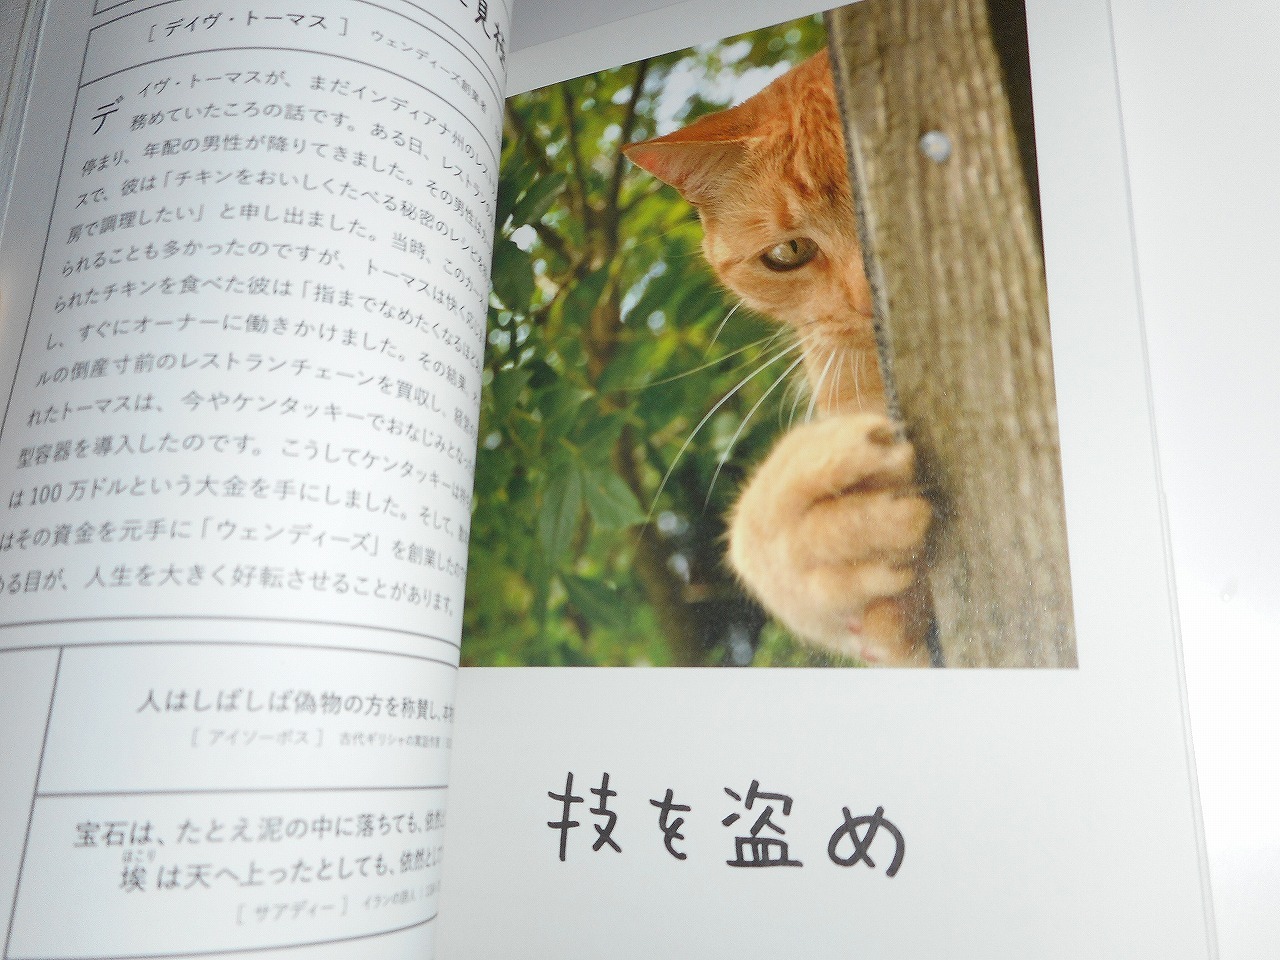 見極
[ デイヴ・トーマス ] ウェンディーズ創業者
デイヴ・トーマスが、まだインディアナ州のレス
務めていたころの話です。ある日、レストランの
停まり、年配の男性が降りてきました。その男性は
スで、彼は「チキンをおいしくたべる秘密のレシピを
房で調理したい」と申し出ました。当時、このカー
られることも多かったのですが、トーマスは快く応じ
られたチキンを食べた彼は「指までなめたくなるほど
し、すぐにオーナーに働きかけました。その結果、
ルの倒産寸前のレストランチェーンを買収し、経営
れたトーマスは、今やケンタッキーでおなじみとなった
型容器を導入したのです。こうしてケンタッキーは
は100万ドルという大金を手にしました。そして、
はその資金を元手に「ウェンディーズ」を創業したの
める目が、人生を大きく好転させることがあります。
人はしばしば偽物の方を称賛し、本
[ アイソーポス ] 古代ギリシャの寓話作者
宝石は、たとえ泥の中に落ちても、依然
埃は天へ上ったとしても、依然とし
ほこり
[ サアディー ] イランの詩人
技を盗め